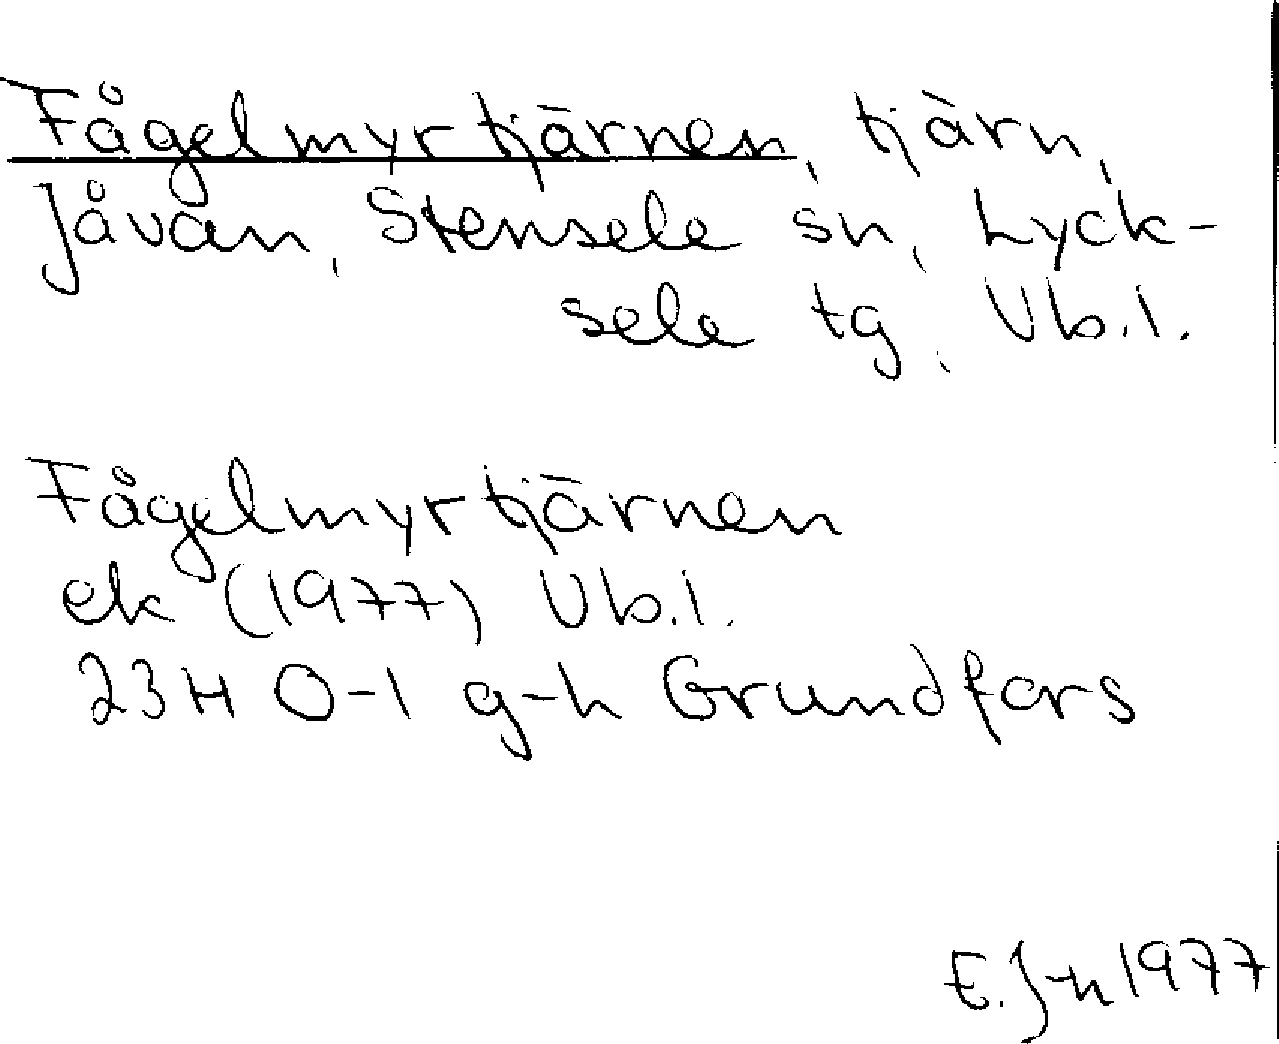 Fågelmyrtjärnen, tjärn,
Jåvan, Stensele sn, Lyck-
sele tg, Vb.l.
Fågelmyrtjärnen
ek (1977) Vb.l.
23H 0-1 g-h Grundfors
E. J-n 1977